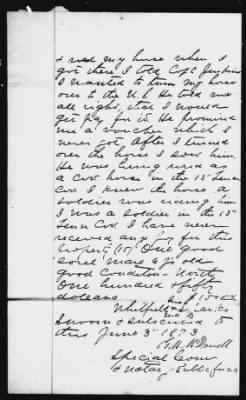 & rode my horse when I
got there I told Capt Jenkins
I wanted to turn my horse
over to the U.S. He told me
all right, that I would
get pay for it. He promised
me a voucher which I
never got. After I turned
over the horse I saw him
He was being used as
a Cav horse in the 15" Tenn
Cav. I knew the horse. a
soldier was riding him
I was a soldier in the 15"
Tenn Cav. I have never
received any pay for this
property (17) One good
Sorrel Mare 6 yr old
good Condition - Worth
One hundred & fifty
dollars $150.00
Whitfield
Sworn & subscribed to
this June 3" 1873
McDowell
Special Com
& Notary Public